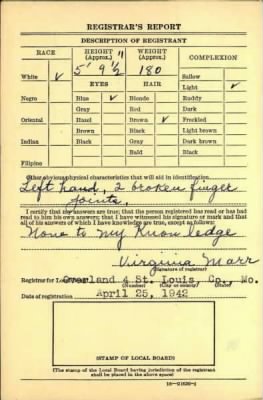 REGISTRAR'S REPORT
DESCRIPTION OF REGISTRANT
RACE
HEIGHT
(Approx.)
WEIGHT
(Approx.)
COMPLEXION
White ✓
5' 9½"
180
Sallow
EYES
HAIR
Light ✓
Negro
Blue ✓
Blonde
Ruddy
Gray
Red
Dark
Oriental
Hazel
Brown ✓
Freckled
Brown
Black
Light brown
Indian
Black
Gray
Dark brown
Bald
Black
Filipino
Other obvious physical characteristics that will aid in identification
Left hand, 2 broken finger
joints.
I certify that my answers are true; that the person registered has read or has had
read to him his own answers; that I have witnessed his signature or mark and that
all of his answers of which I have knowledge are true, except as follows:
None to my Knowledge
Virginia Marr
(Signature of registrar)
Registrar for Local Board
Overland 4 St. Louis, Co., Mo.
(Number) (City or county) (State)
Date of registration April 25, 1942
(STAMP OF LOCAL BOARD)
(The stamp of the Local Board having jurisdiction of the registrant
shall be placed in the above space)